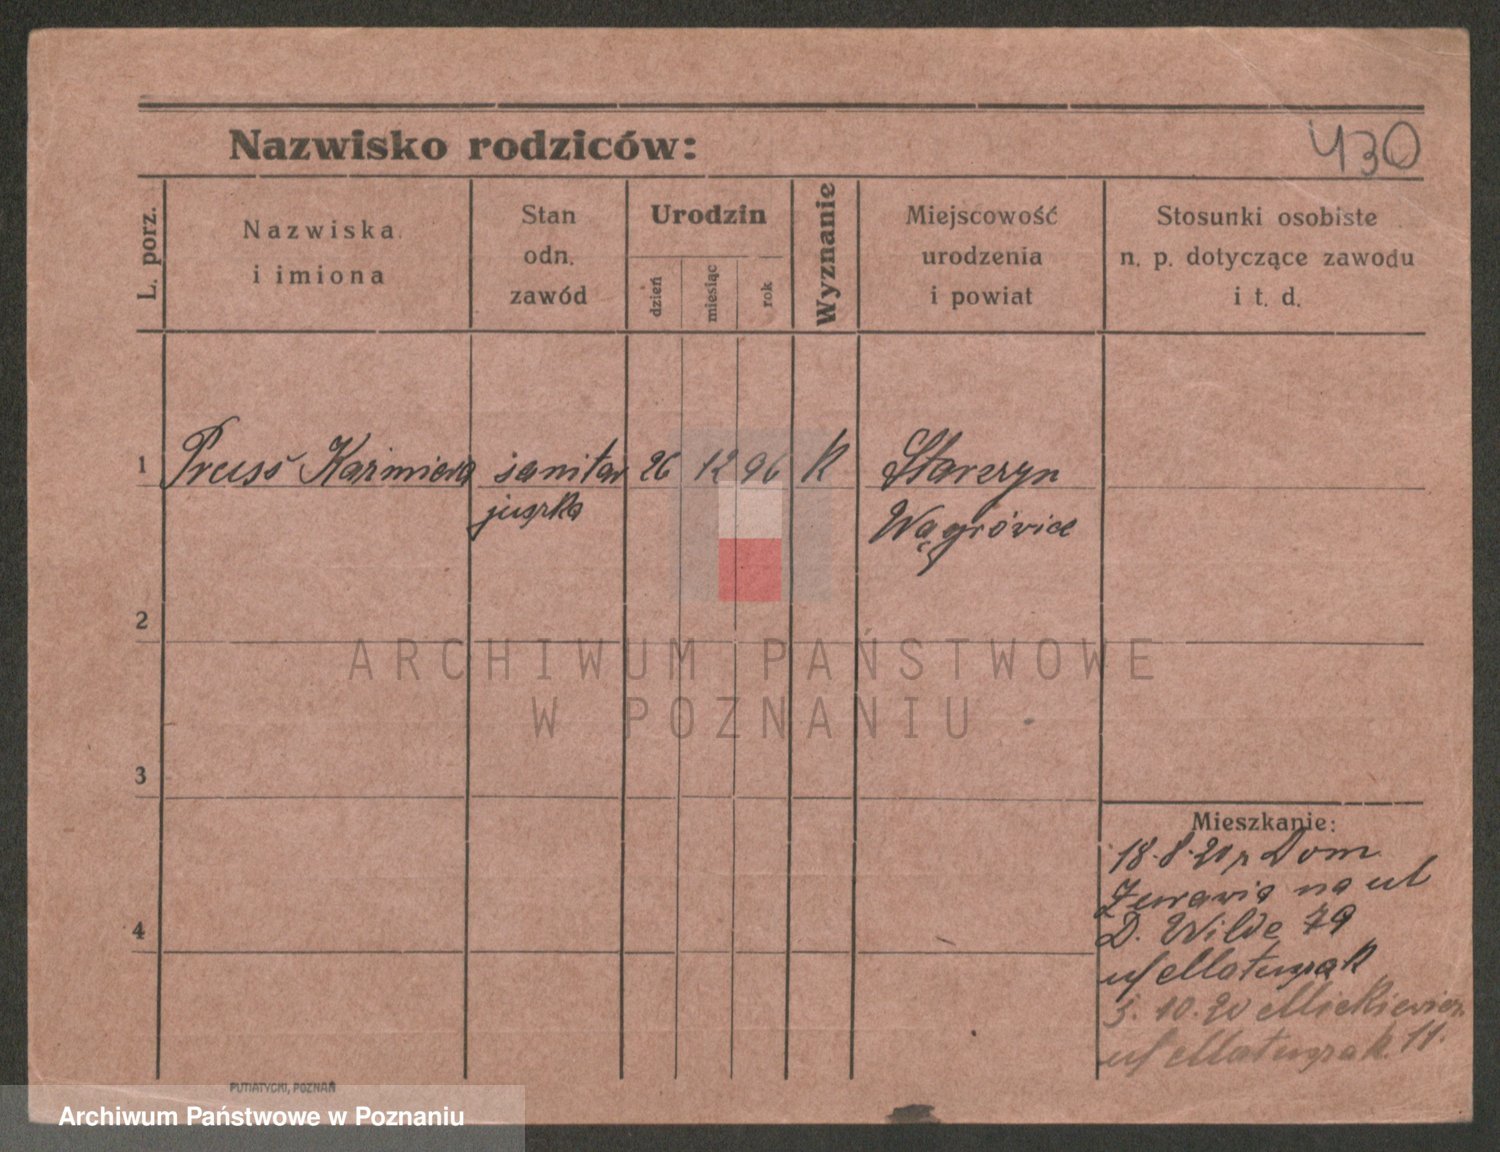 Nazwisko rodziców:
430
L. porz.
Nazwiska
i imiona
Stan
odn.
zawód
Urodzin
dzień
miesiąc
rok
Wyznanie
Miejscowość
urodzenia
i powiat
Stosunki osobiste
n. p. dotyczące zawodu
i t. d.
1
Preuss Kazimiera
sanitar
juszka
26 12 96
K
Starezyn
Wągrówiec
2
3
4
Mieszkanie:
18.8.20 Dom
na ul
D. Wilde 79
Matuszak
5.10.20 Mickiewicz
11.
Matuszak
PUTIATYCKI, POZNAŃ
ARCHIWUM PAŃSTWOWE
W POZNANIU
Archiwum Państwowe w Poznaniu